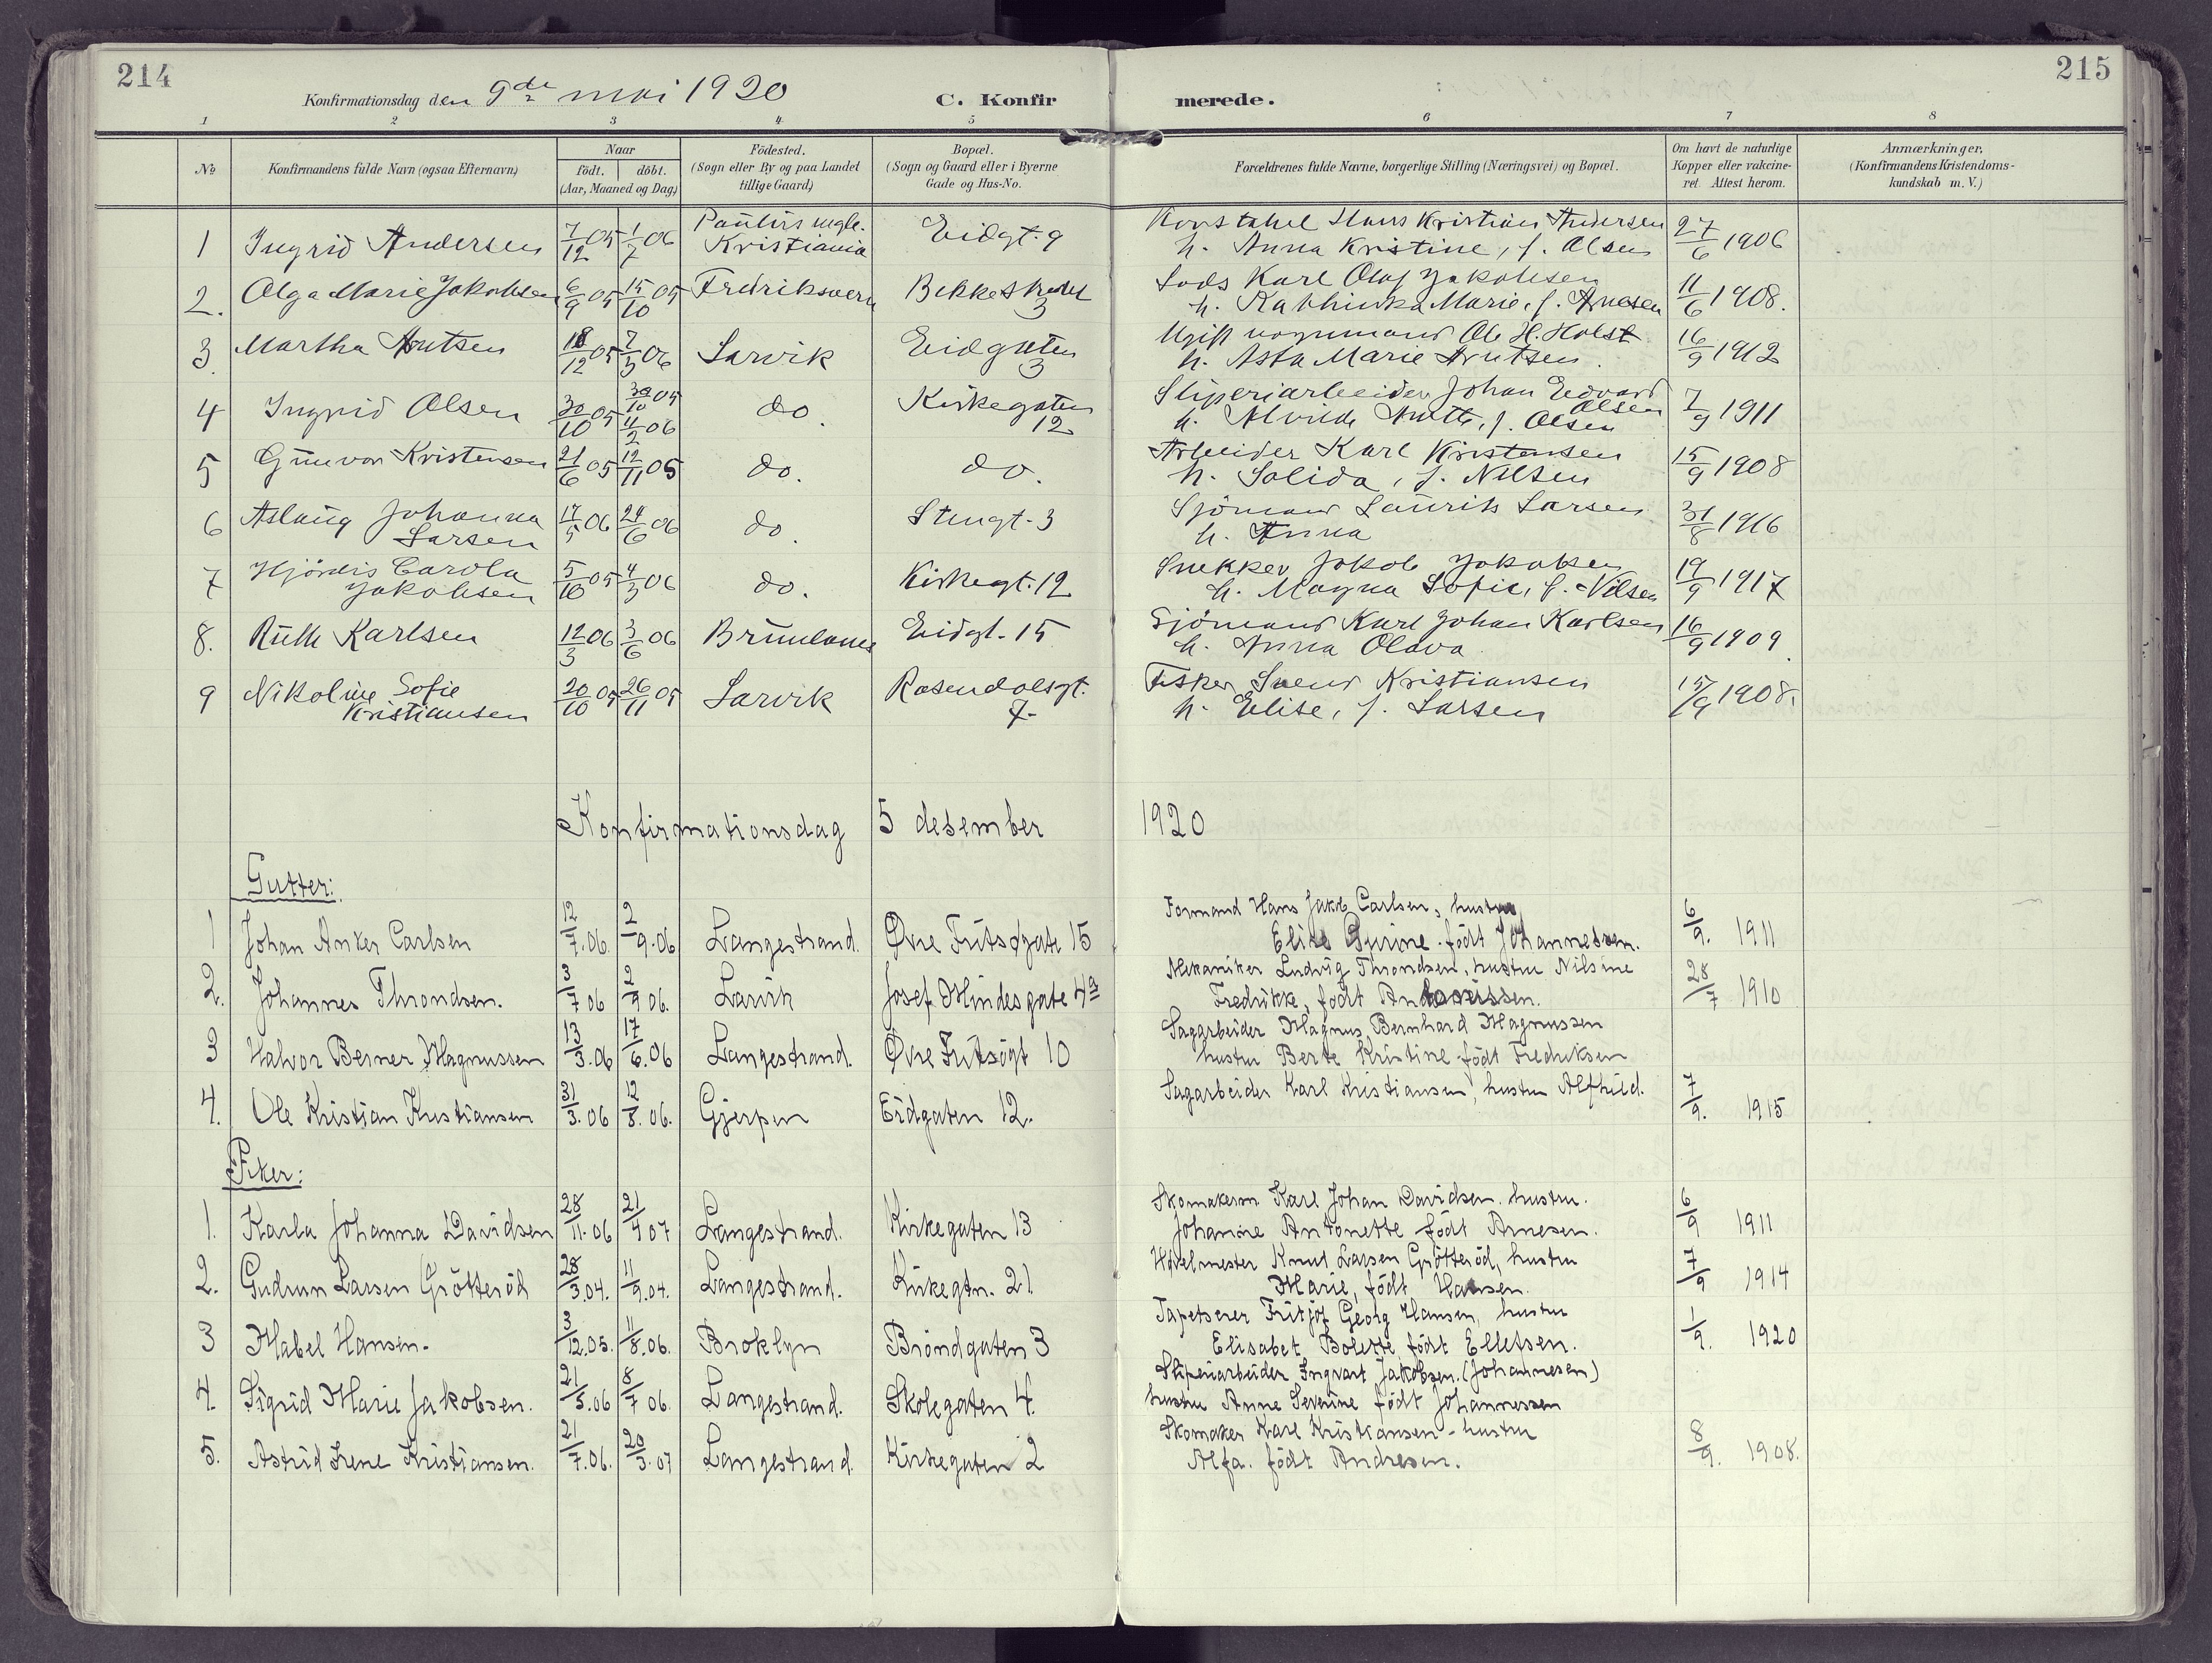 214
Konfirmationsdag den 9de mai 1920
C. Konfirmerede.
215
1 2 3 4 5 6 7 8
No
Konfirmandens fulde Navn (ogsaa Efternavn)
Naar
födt. döbt.
(Aar, Maaned og Dag)
Födested.
(Sogn eller By og paa Landet
tillige Gaard)
Bopæl.
(Sogn og Gaard eller i Byerne
Gade og Hus-No.
Forældrenes fulde Navne, borgerlige Stilling (Næringsvei) og Bopæl.
Om havt de naturlige
Kopper eller vakcine-
ret Attest herom.
Anmærkninger.
(Konfirmandens Kristendoms-
kundskab m. V.)
1 Ingrid Andersen 7/12 05 1/7 06 Paulus mgh. Kristiania Eidgt. 9 Konstabel Hans Kristian Andersen
h. Anna Kristine, f. Olsen 27/6 1906
2. Olga Marie Jakobsen 6/9 05 15/10 05 Fredriksvern Bekkestredet 3 Lods Karl Olaf Jakobsen
h. Kathinka Marie, f. Arnesen 11/6 1908.
3. Martha Knutsen 18/12 05 7/3 06 Larvik Eidgaten 3 Ugift vognmand Ole H. Holst
h. Asta Marie Knutsen 16/9 1912
4 Ingrid Olsen 30/10 05 30/10 05 11/2 06 do. Kirkegaten 12 Sliperiarbeider Johan Edvard Olsen
h. f. Olsen 7/9 1911
5 Gunvor Kristensen 21/6 05 12/11 05 do. do. Arbeider Karl Kristensen
h. Solida, f. Nilsen 15/9 1908
6 Aslaug Johanna
Larsen 17/5 06 24/6 06 do. Stengt. 3 Sjömand Laurits Larsen
h. Anna 31/8 1916
7 Hjördis Carola
Jakobsen 5/10 05 4/3 06 do. Kirkegt. 12 Snekker Jakob Jakobsen
h. Magna Sofie, f. Nilsen 19/9 1917
8. Ruth Karlsen 12/3 06 3/6 06 Brunlanes Eidgt. 15 Sjömand Karl Johan Karlsen
h. Anna Olava 16/9 1909.
9 Nikoline Sofie
Kristiansen 20/10 05 26/11 05 Larvik Rosendalsgt. 7 Fisker Svend Kristiansen
h. Elise, f. Larsen 15/9 1908.
Konfirmationsdag 5 desember 1920
Gutter:
1 Johan Anker Carlsen 12/7.06. 2/9.06 Langestrand. Øvre Fritsøgate 15 Formand Hans Jakob Carlsen, hustru
Elise Gurine født Johannessen. 6/9. 1911
2. Johannes Throndsen. 3/7 06 2/9 06. Larvik Josef Hindes gate 4a Mekaniker Ludvig Throndsen, hustru Nilsine
Fredrikke, født 28/7 1910
3 Halvor Berner Magnussen 13/3.06 17/6.06 Langestrand. Øvre Fritsøgt 10 Sagarbeider Magnus Bernhard Magnussen
hustru Berte Kristine født Fredriksen
4. Ole Kristian Kristiansen 31/3.06 12/8.06. Gjerpen Eidgaten 12. Sagarbeider Karl Kristiansen, hustru Alfhild. 7/9. 1915
Piker:
1. Karla Johanna Davidsen 28/11.06 21/4 07 Langestrand. Kirkegaten 13 Skomakerm Karl Johan Davidsen. hustru.
Johanne Antonette født Arnesen. 6/9 1911
2. Gudrun Larsen Grötteröd 28/3.04. 11/9.04. Langestrand. Kirkegtn. 21 Hövelmester Knut Larsen Grötteröd, hustru
Marie, født Hansen. 7/9 1914
3 Mabel Hansen. 3/12.05. 11/8.06. Broklyn Bröndgaten 3 Tapetserer Fritjof Georg Hansen, hustru
Elisabet Bolette født Ellefsen. 1/9. 1920
4. Sigrid Marie Jakobsen. 21/5.06 8/7 06. Langestrand. Skolegaten 4. Sliperiarbeider Ingvart Jakobsen. (Johannesen)
hustru Anne Severine født Johannessen
5. Astrid Irene Kristiansen. 21/7.06. 20/3.07 Langestrand. Kirkegaten 2 Skomaker Karl Kristiansen - hustru
Alfa. født Andresen. 8/9. 1908.